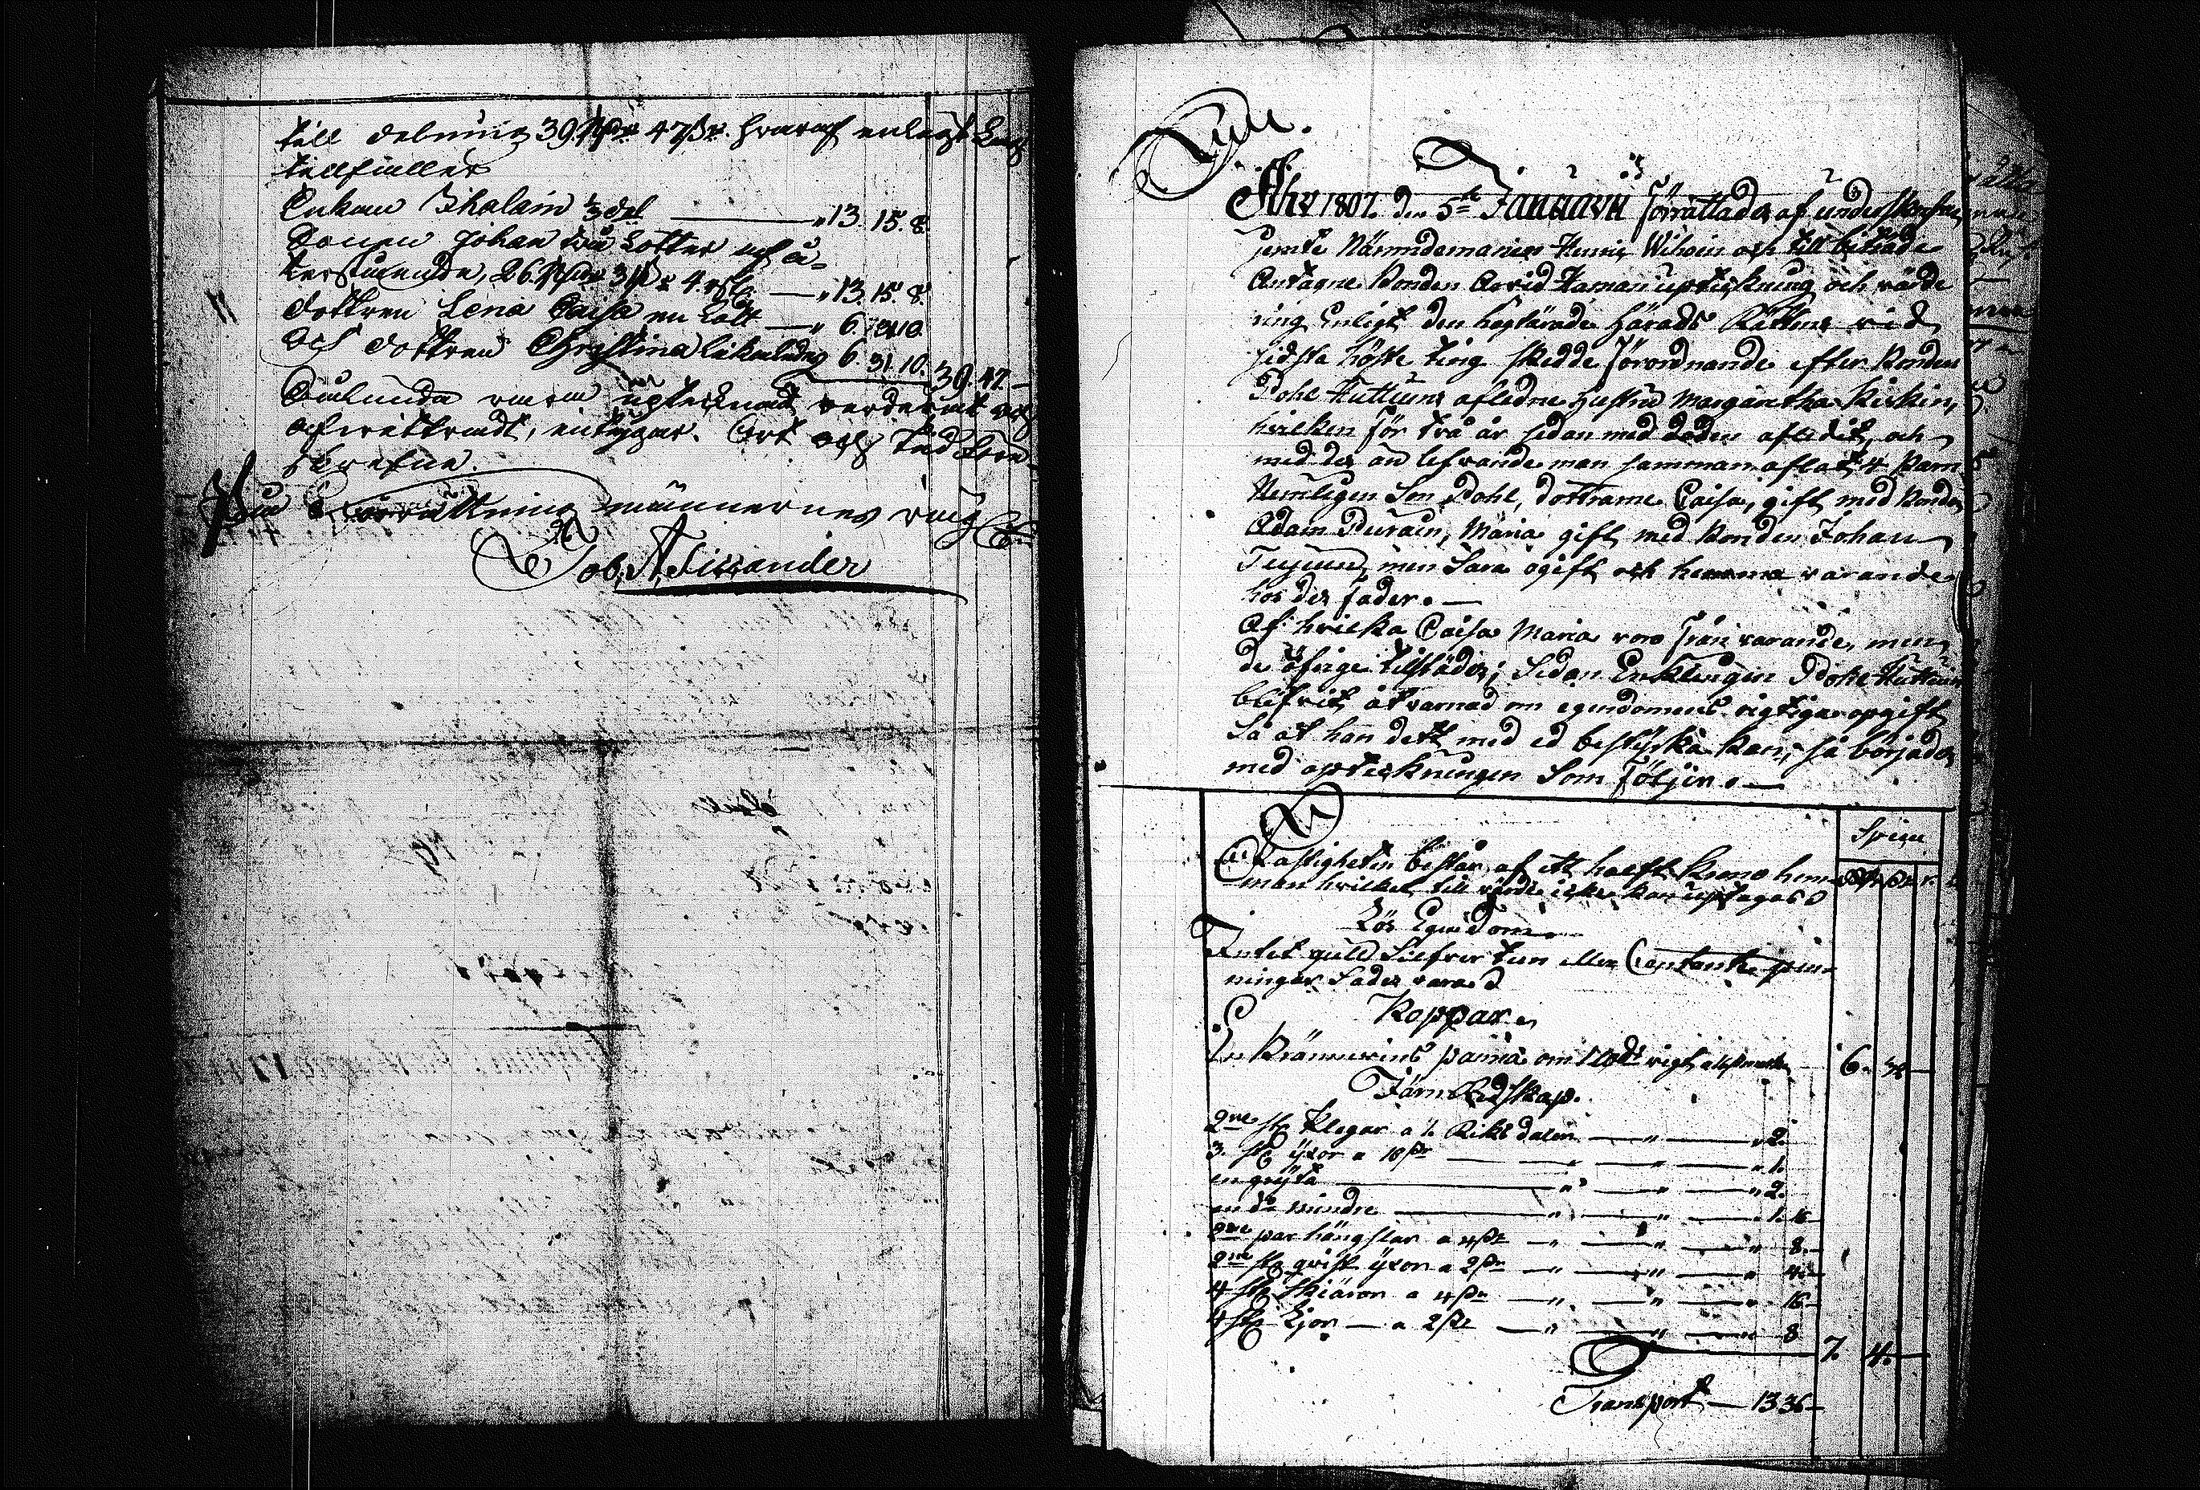 till delning 39 Rdr 47 sk. hvaraf enligt Lag
tillfaller
Enkan Thalain ⅓ del — " 13. 15. 8.
Sonen Johan två Lotter uf å-
terstående, 26 Rdr 31 sk 4 rst — " 13. 15. 8.
dottren Lena Caisa en Lott — " 6. 31. 10.
Och dottren Christina likaledes 6. 31. 10. 39. 47 —
Sålunda vara upteknat värderat och
afwittradt, intygar. Ort och Tid före-
skrefne.
På Förrättnings männernes väg
Job. A. Lilander
Ahr 1807. den 5te Januarii förrättades af underskrefven
jemte Nämndemannen Henric Wilwin och till biträde
Antagne Bonden Arvid Haman uptekning och värde
ring Enligt den högtärade Härads Rättens vid
sidsta höste ting skedde Förordnande efter Bonden
Pohl Huttuns afledne hustru Margaretha Kiskin,
hvilken för två år sedan med döden aflidit, och
med des än lefvande man samman aflat 4 Barn
Nemligen Son Pohl, dottrarne Caisa, gift med Bonden
Adam Purain, Maria gift med Bonden Johan
men Sara ogift och hemma varande
hos des fader. —
Af hvilka Caisa Maria voro från varande, men
de öfrige tillstädes; Sedan Enklingen Pohl Huttuin
blifvit åtvarnad om egendomens rigtiga opgift
så at han dett med ed bestyrka kan, så börjades
med optekningen Som Följer. —
Specie
Fastigheten består af ett halft Krono hem- Rdr sk r.
man hvilket till värde icke kan uptagas
Lös Egendom
Intet guld Silfver tenn eller Contante pen-
ningar Sades vara
Koppar
En Bränvins panna om vigt 6. 32 —
Järn Redskap.
2ne st Klegar a 1 Riksdaler — " — " 2.
3. st yxor a 16 sk — " — " — " 1.
en gryta — " — " — " 2.
en do mindre — " — " — 1. 16 —
2ne par hängslar a 4 sk — " — " — " 8 —
2ne st qvist yxor a 2 sk — " — " — " 4 —
4 st Skiäror a 4 sk — " — " — " 16 —
4 st Ljor — a 2 sk — " — " — " 8 7. 4. —
Transport — 13 36 —